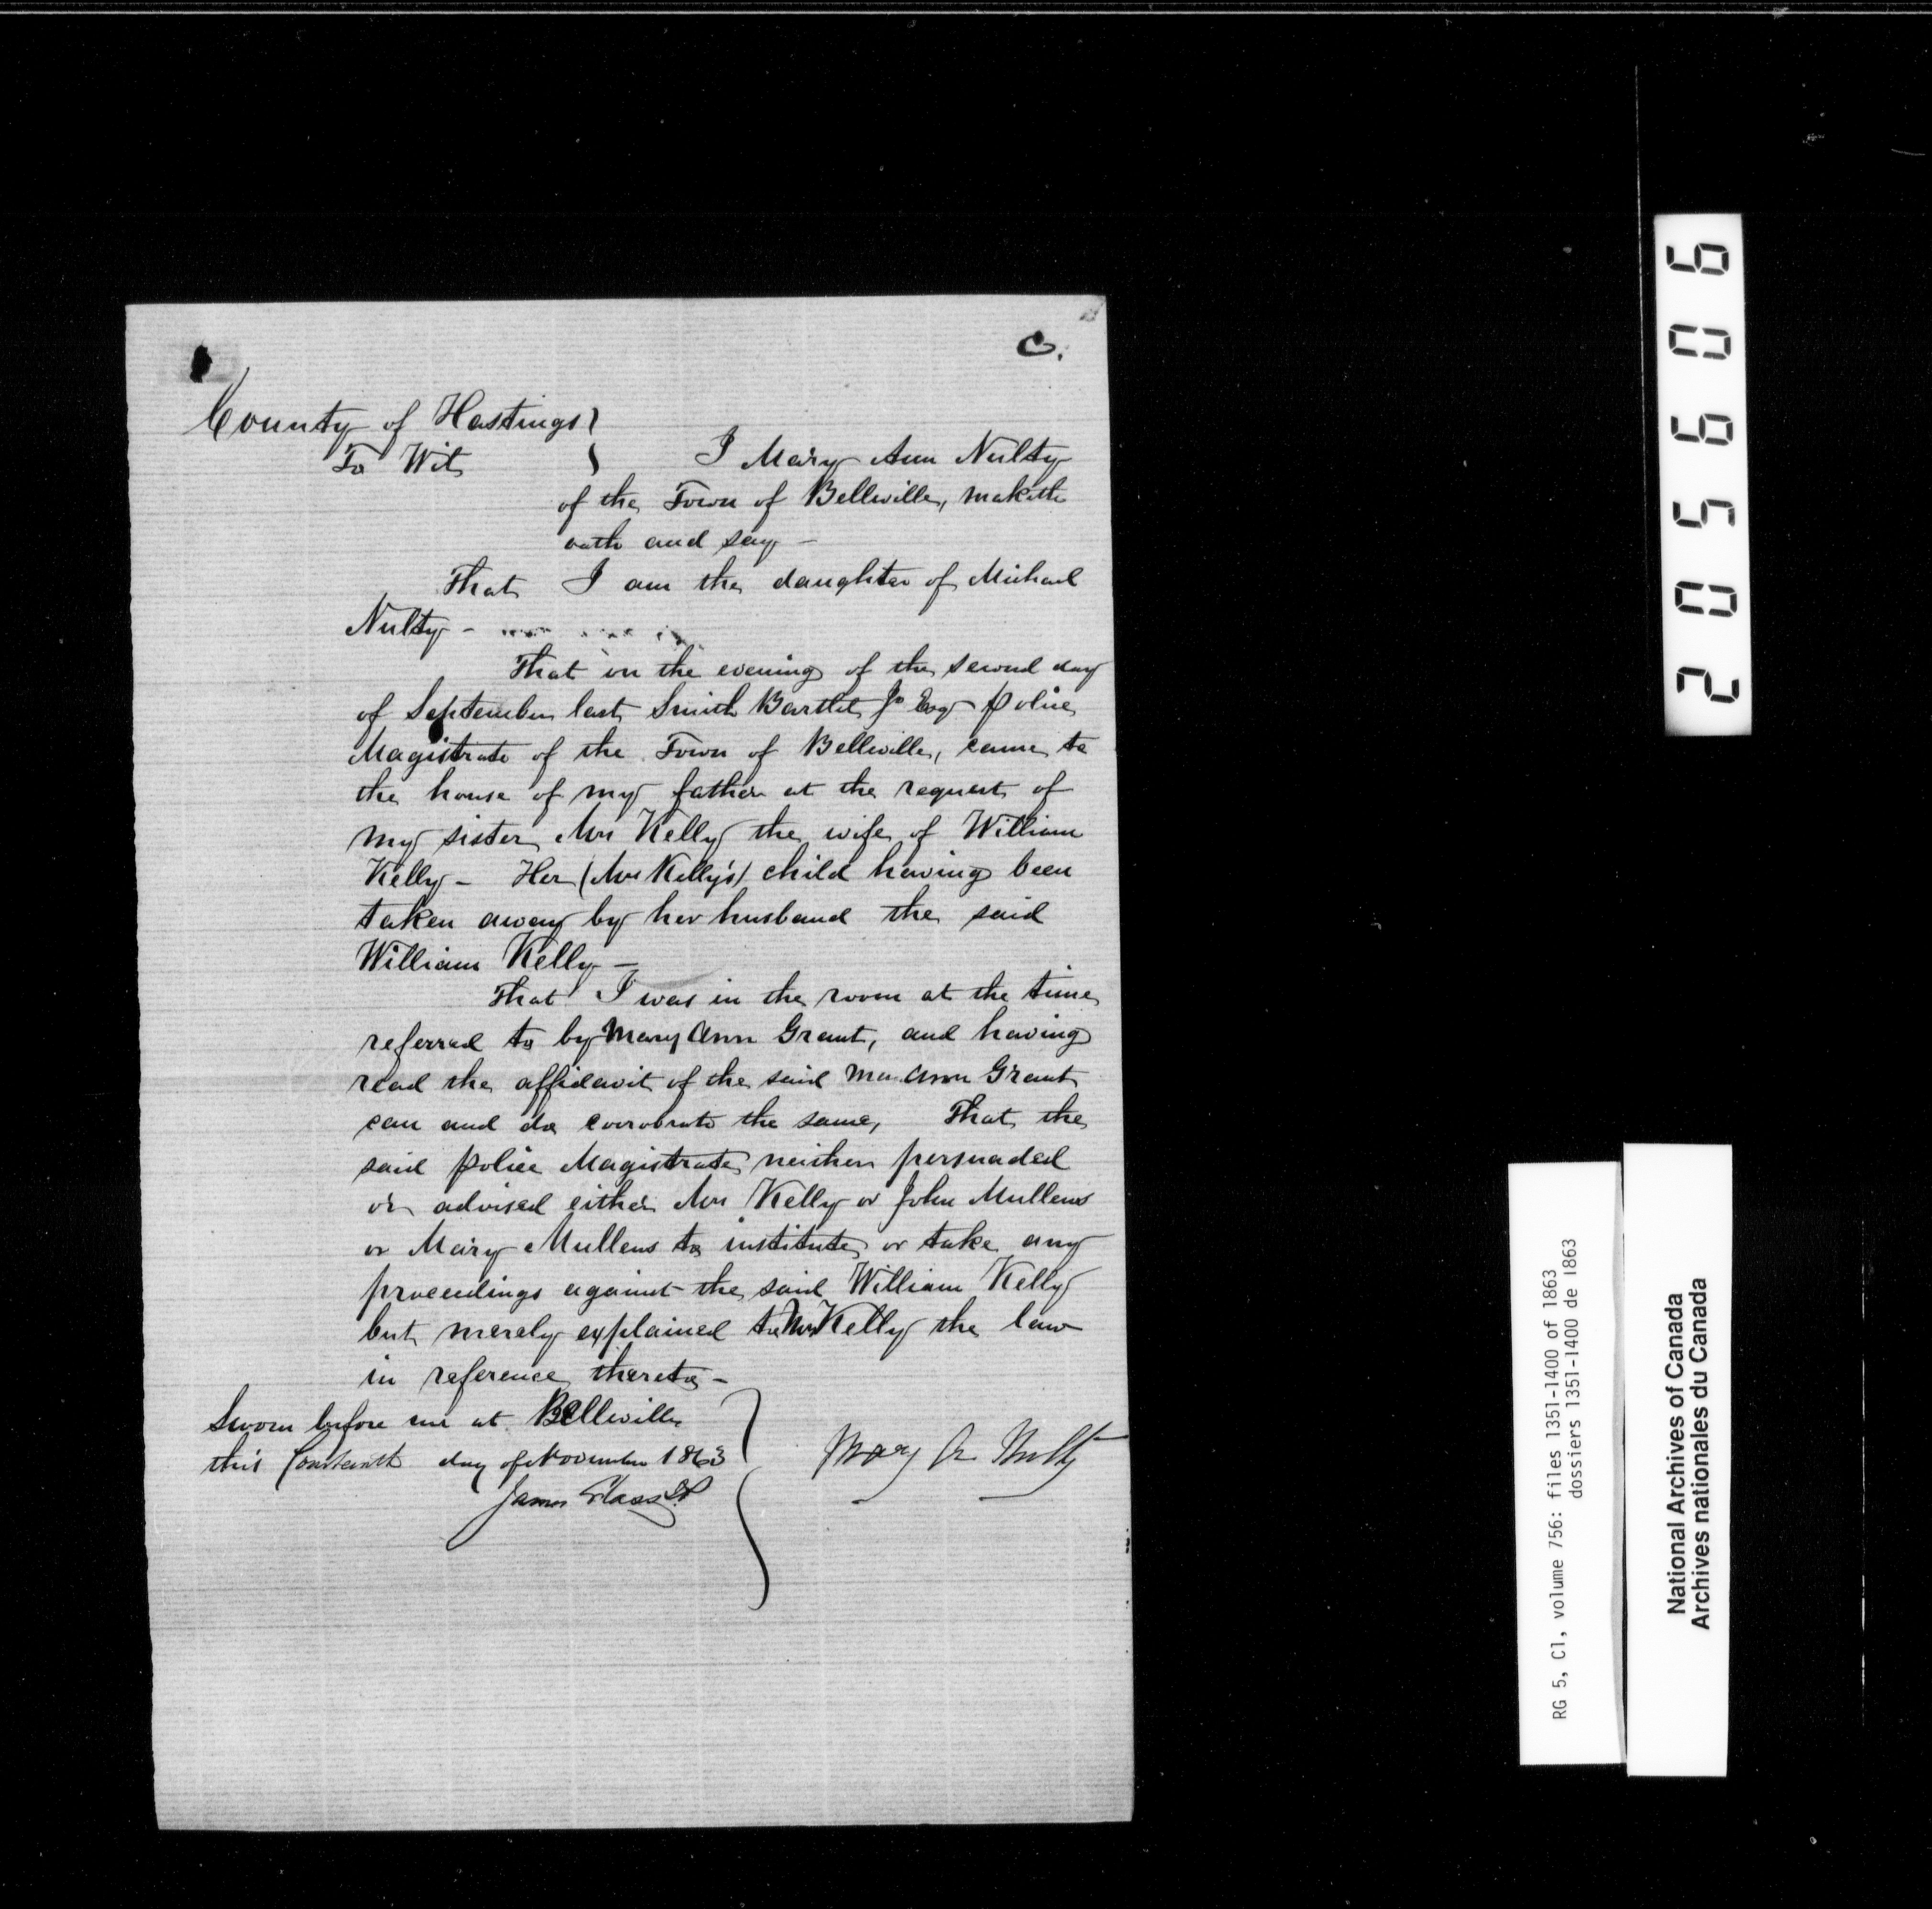 C.
County of Hastings }
To Wit } I Mary Ann Nulty
of the Town of Bellville, maketh
oath and say —
That I am the daughter of Michael
Nulty —
That on the evening of the second day
of September last Smith Bartlet Jr Esq police
Magistrate of the Town of Bellville, came to
the house of my father at the request of
my sister Mrs Kelly the wife of William
Kelly — Her (Mrs Kelly's) child having been
taken away by her husband the said
William Kelly —
That I was in the room at the time
referred to by Mary Ann Grant, and having
read the affidavit of the said Ma. Ann Grant
can and do corrobrate the same, That the
said police Magistrate neither persuaded
or advised either Mrs Kelly or John Mullens
or Mary Mullens to institute or take any
proceedings against the said William Kelly
but merely explained to Mrs Kelly the law
in reference thereto —
Sworn before me at Bellville
this fourteenth day of November 1863
James Glass
Mary A. Nulty
205606
RG 5, C1, volume 756: files 1351-1400 of 1863
dossiers 1351-1400 de 1863
National Archives of Canada
Archives nationales du Canada